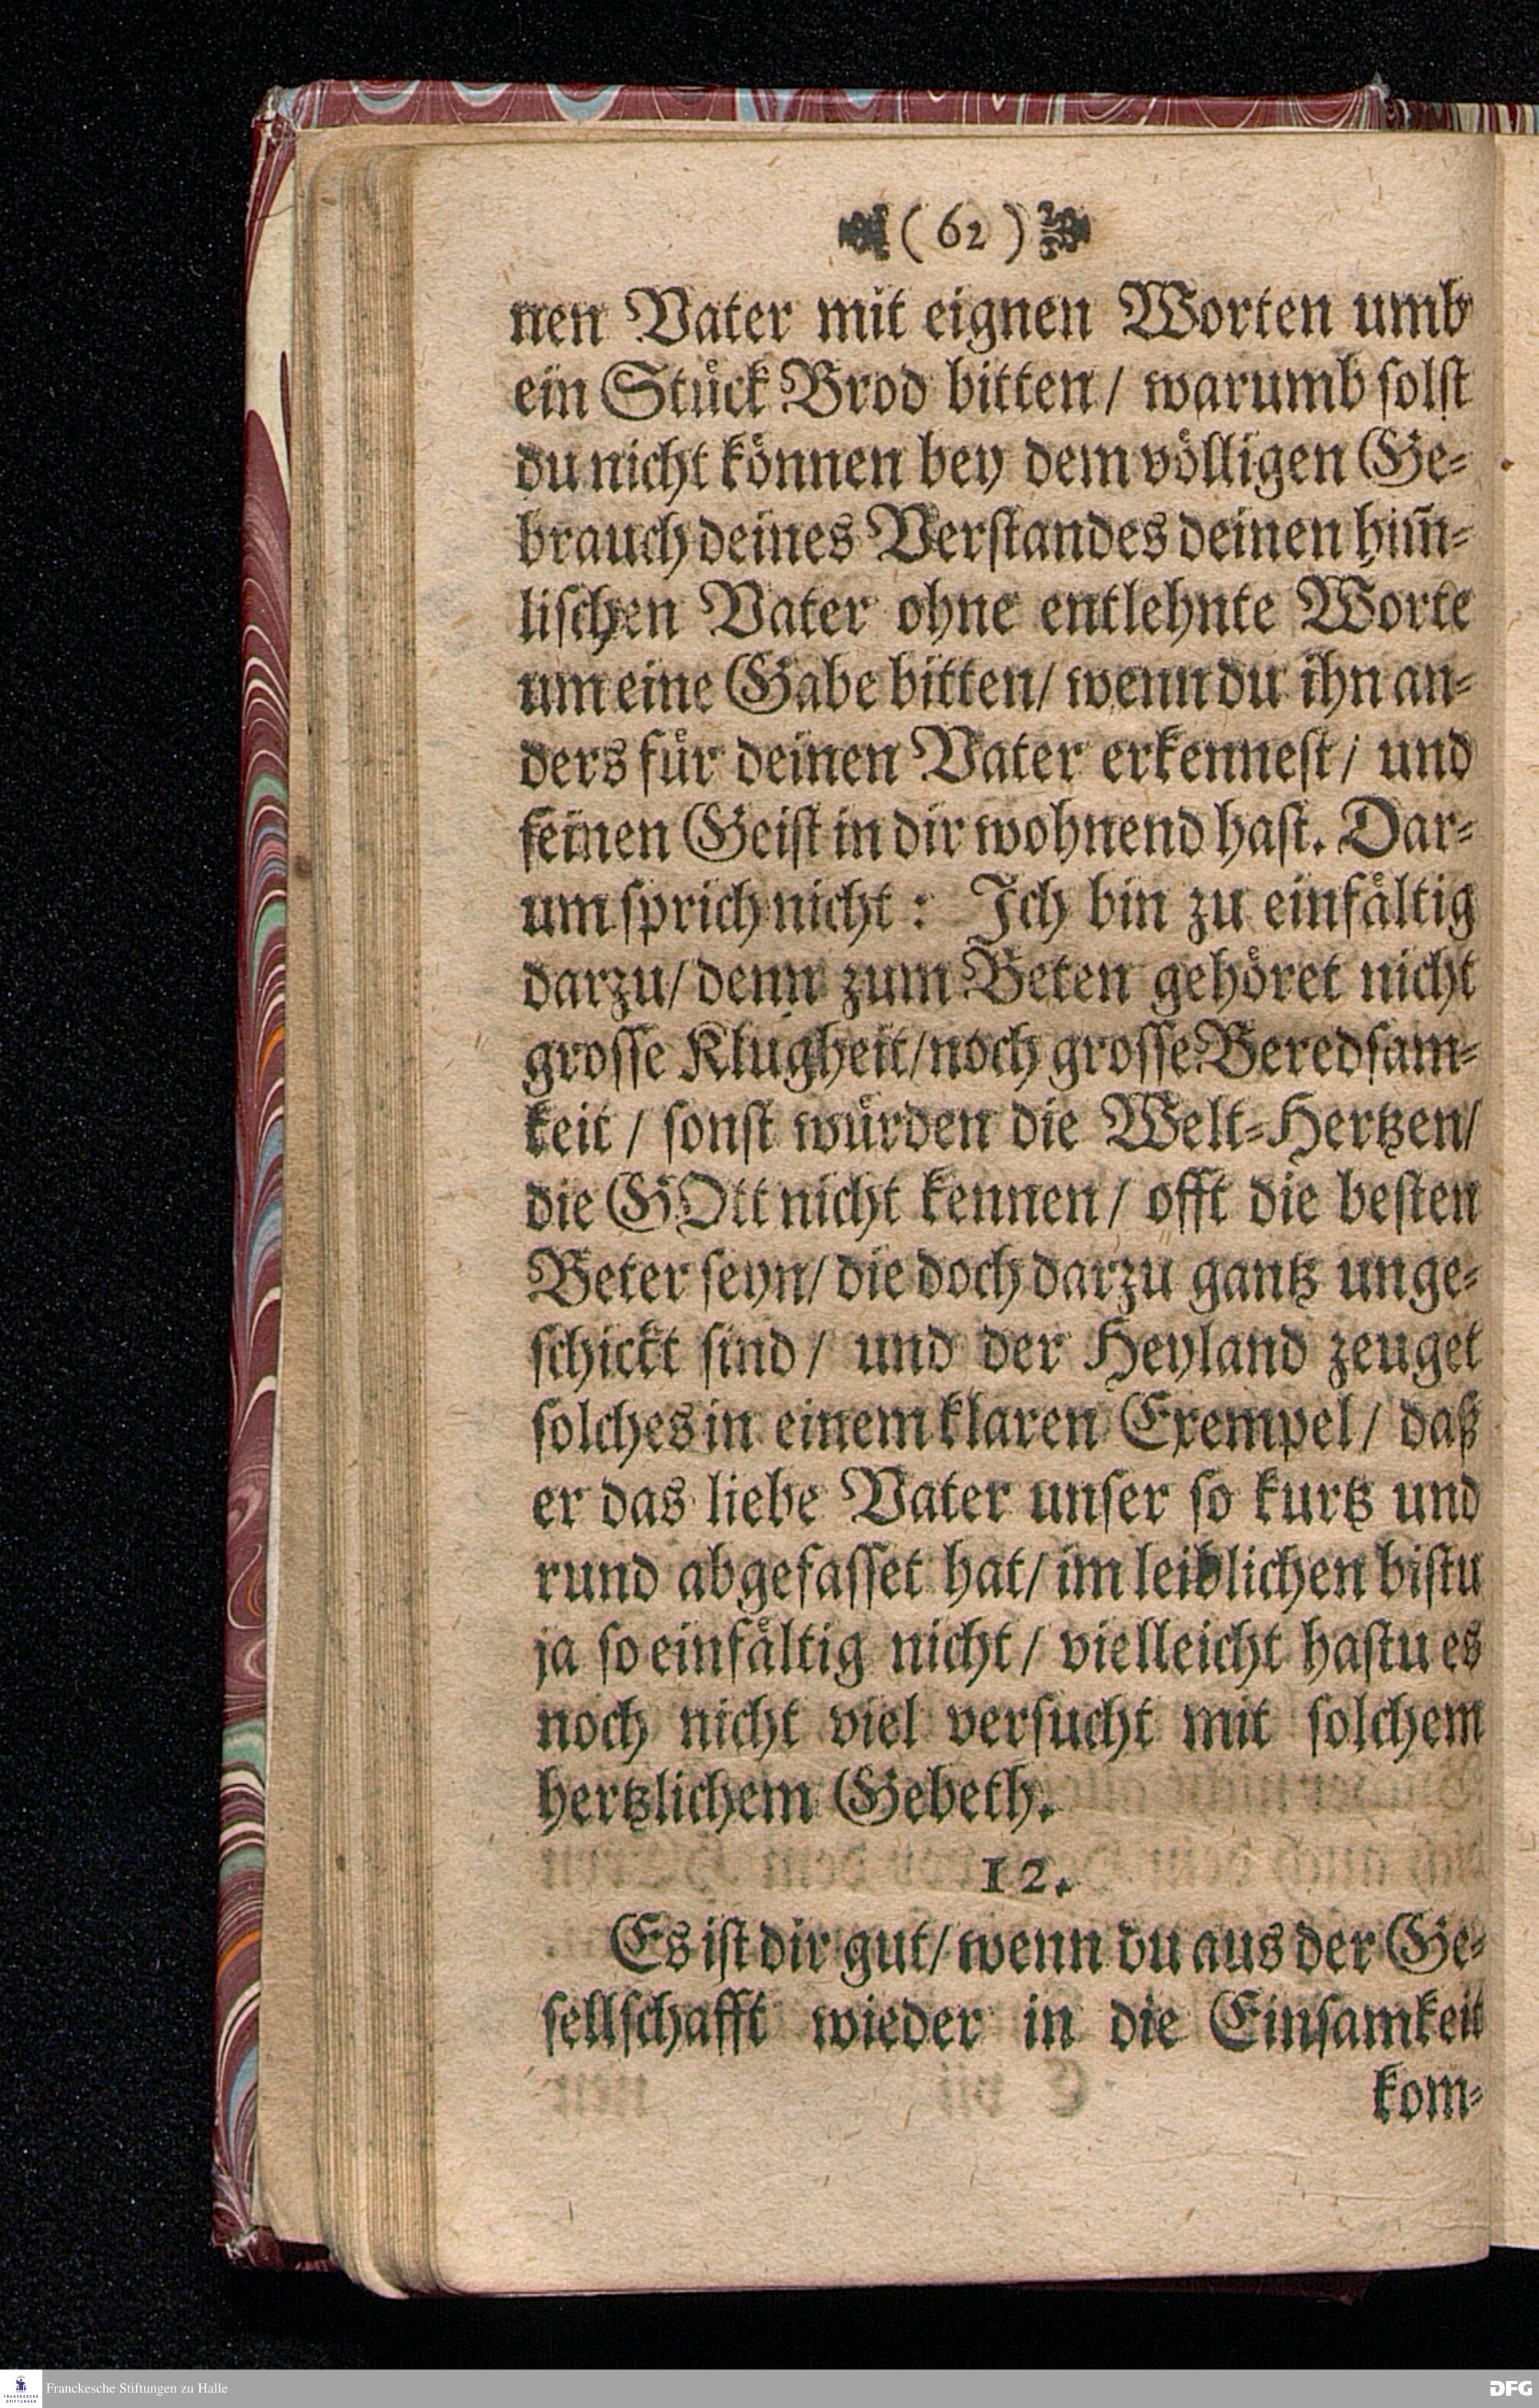 ( 62 )
nen Vater mit eignen Worten umb
ein Stuͤck Brod bitten / warumb ſolſt
du nicht koͤnnen bey dem voͤlligen Ge-
brauch deines Verſtandes deinen him̃-
liſchen Vater ohne entlehnte Worte
um eine Gabe bitten / wenn du ihn an-
ders fuͤr deinen Vater erkenneſt / und
ſeinen Geiſt in dir wohnend haſt. Dar-
um ſprich nicht : Ich bin zu einfaͤltig
darzu / denn zum Beten gehoͤret nicht
groſſe Klugheit / noch groſſe Beredſam-
keit / ſonſt wuͤrden die Welt-Hertzen /
die GOtt nicht kennen / offt die beſten
Beter ſeyn / die doch darzu gantz unge-
ſchickt ſind / und der Heyland zeuget
ſolches in einem klaren Exempel / daß
er das liebe Vater unſer ſo kurtz und
rund abgefaſſet hat / im leiblichen biſtu
ja ſo einfaͤltig nicht / vielleicht haſtu es
noch nicht viel verſucht mit ſolchem
hertzlichem Gebeth.
12.
Es iſt dir gut / wenn du aus der Ge-
ſellſchafft wieder in die Einſamkeit
kom-
Franckesche Stiftungen zu Halle
DFG